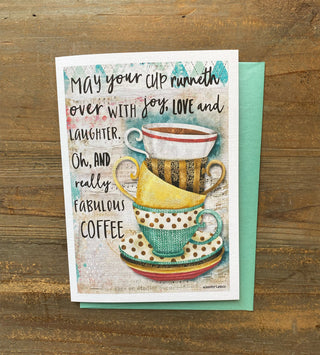 MAY your CUP runneth
over WITH joy, LOVE and
LAUGHTER.
Oh, AND
really
FABULOUS
COFFEE